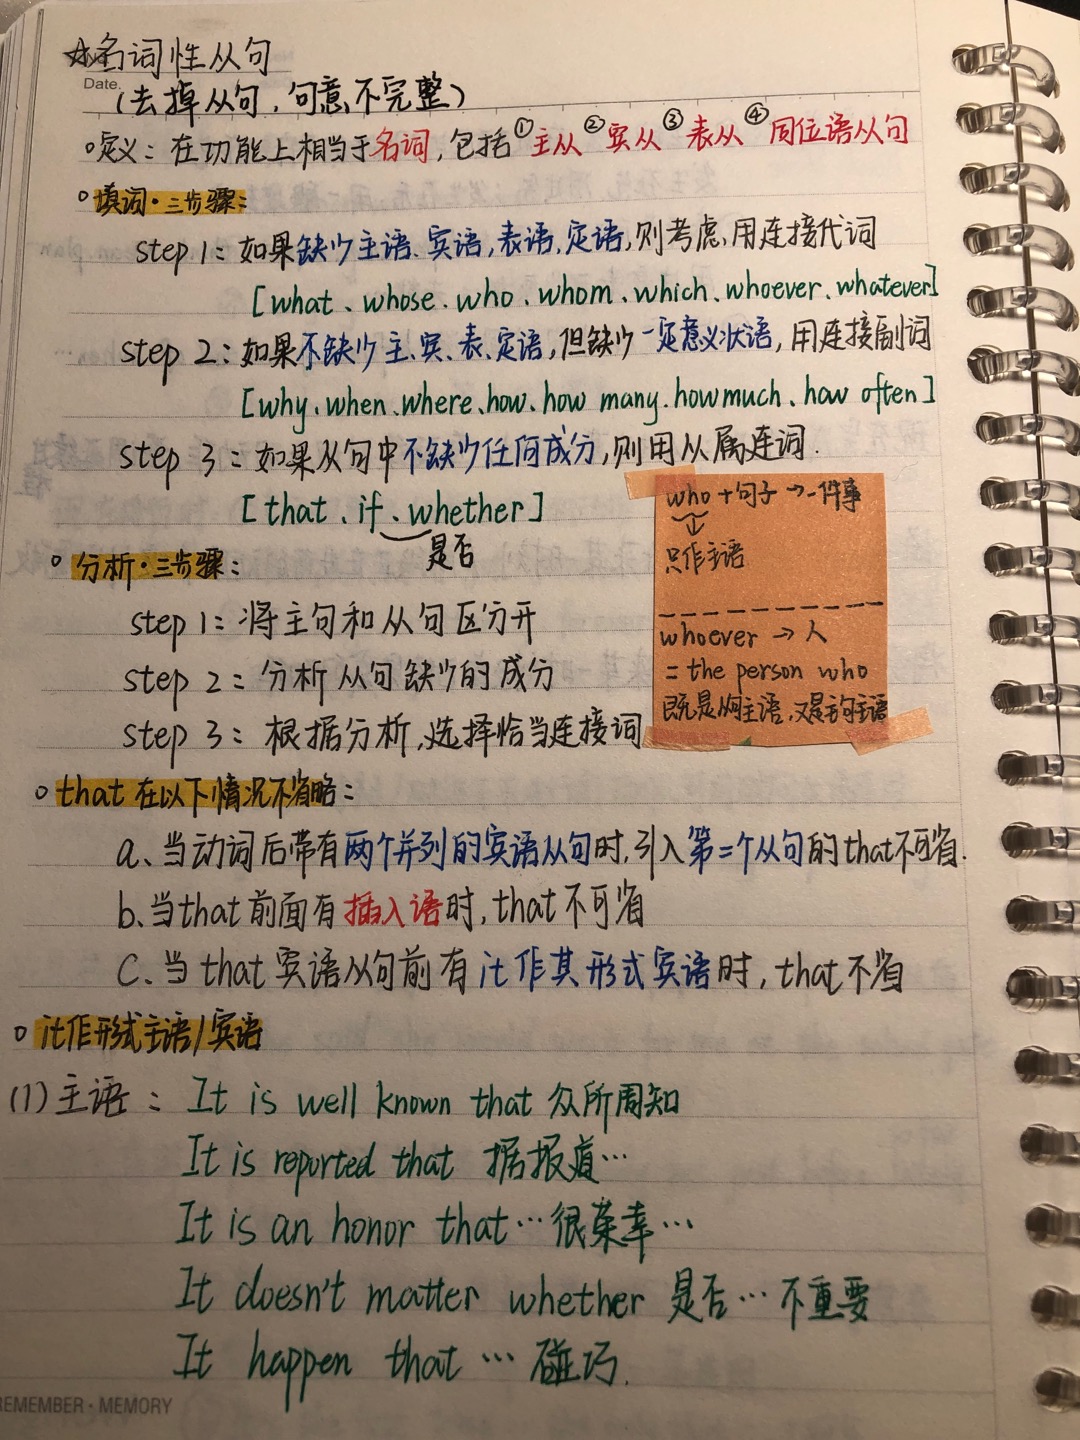 ☆名词性从句
Date.
(去掉从句,句意不完整)
定义:在功能上相当于名词,包括①主从②宾从③表从④同位语从句
填词·三步骤:
step 1:如果缺少主语、宾语,表语,定语,则考虑用连接代词
[what、whose、who、whom、which、whoever、whatever]
step 2:如果不缺少主、宾、表、定语,但缺少一定意义状语,用连接副词
[why、when、where、how、how many、how much、how often]
step 3:如果从句中不缺少任何成分,则用从属连词.
[that、if、whether]
是否
who+句子→一件事
↓
只作主语
whoever → 人
= the person who
既是从句主语,又是主句主语
分析·三步骤:
step 1:将主句和从句区分开
step 2:分析从句缺少的成分
step 3:根据分析,选择恰当连接词
that 在以下情况不省略:
a、当动词后带有两个并列的宾语从句时,引入第二个从句的that不可省.
b、当that前面有插入语时,that不可省
c、当that宾语从句前有it作其形式宾语时,that不省
it作形式主语/宾语
(1)主语:It is well known that 众所周知
It is reported that 据报道…
It is an honor that…很荣幸…
It doesn't matter whether 是否…不重要
It happen that … 碰巧.
REMEMBER·MEMORY